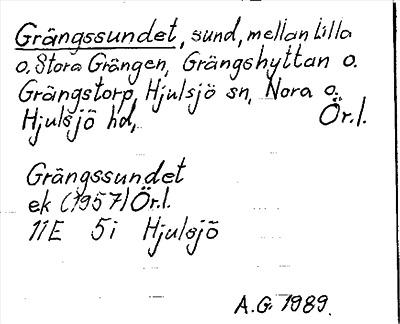 Grängssundet, sund, mellan Lilla
o. Stora Grängen, Grängshyttan o.
Grängstorp, Hjulsjö sn, Nora o.
Hjulsjö hd, Ör.l.
Grängssundet
ek (1957) Ör.l.
11E 5i Hjulsjö
A.G. 1989.